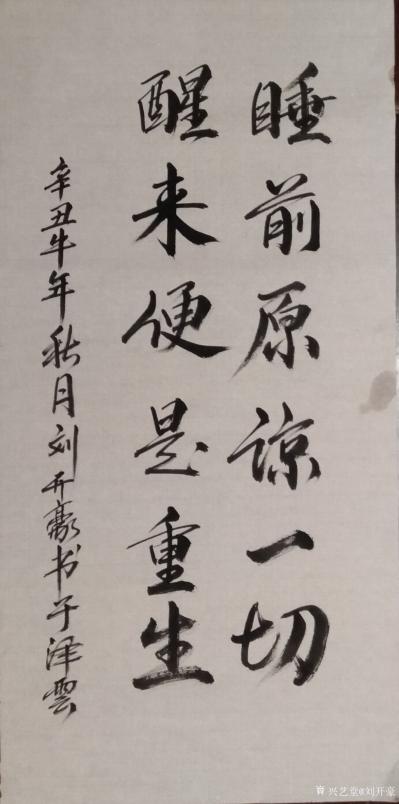 睡前原谅一切
醒来便是重生
辛丑牛年秋月刘开豪书于泽雲
兴艺堂@刘开豪